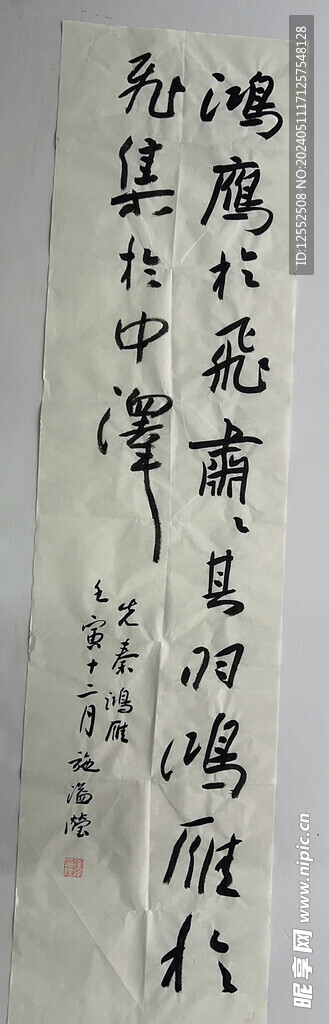 鴻鷹於飛肅〻其羽鴻雁於
飛集於中澤
先秦鴻雁
壬寅十二月施溢瑩
ID:12552508 NO:20240511171257548128
昵享网 www.nipic.cn